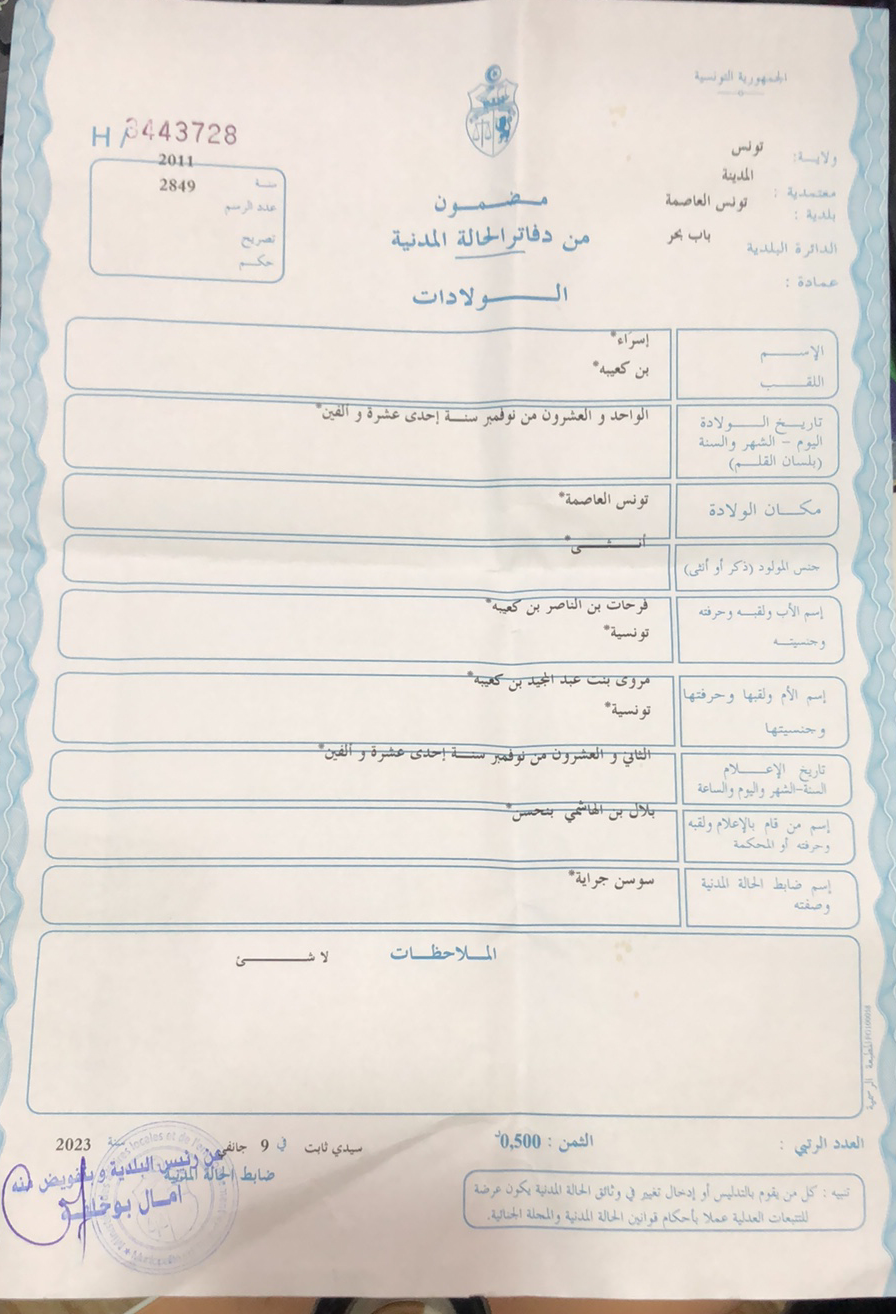 الجمهورية التونسية
H A 3443728
2011
سنة
2849
عدد الرسم
تصريح
حكم
ولاية: تونس
معتمدية : المدينة
بلدية : تونس العاصمة
الدائرة البلدية باب بحر
عمادة :
مضمون
من دفاتر الحالة المدنية
الولادات
الإسم إسراء*
اللقب بن كعيبه*
تاريخ الولادة الواحد و العشرون من نوفمبر سنة إحدى عشرة و ألفين*
اليوم - الشهر والسنة
(بلسان القلم)
مكان الولادة تونس العاصمة*
جنس المولود (ذكر أو أنثى) أنثى*
إسم الأب ولقبه وحرفته فرحات بن الناصر بن كعيبه*
وجنسيته تونسية*
إسم الأم ولقبها وحرفتها مروى بنت عبد المجيد بن كعيبه*
وجنسيتها تونسية*
تاريخ الإعلام الثاني و العشرون من نوفمبر سنة إحدى عشرة و ألفين*
السنة-الشهر واليوم والساعة
إسم من قام بالإعلام ولقبه بلال بن الهاشمي بنحسن*
وحرفته أو المحكمة
إسم ضابط الحالة المدنية سوسن جراية*
وصفته
الملاحظات لا شئ
المطبعة الرسمية
العدد الرتبي :
الثمن : 0,500د
سيدي ثابت في 9 جانفي سنة 2023
ضابط الحالة المدنية
عن رئيس البلدية و بتفويض منه
أمال بوخلفة
تنبيه : كل من يقوم بالتدليس أو إدخال تغيير في وثائق الحالة المدنية يكون عرضة
للتتبعات العدلية عملا بأحكام قوانين الحالة المدنية والمجلة الجنائية.